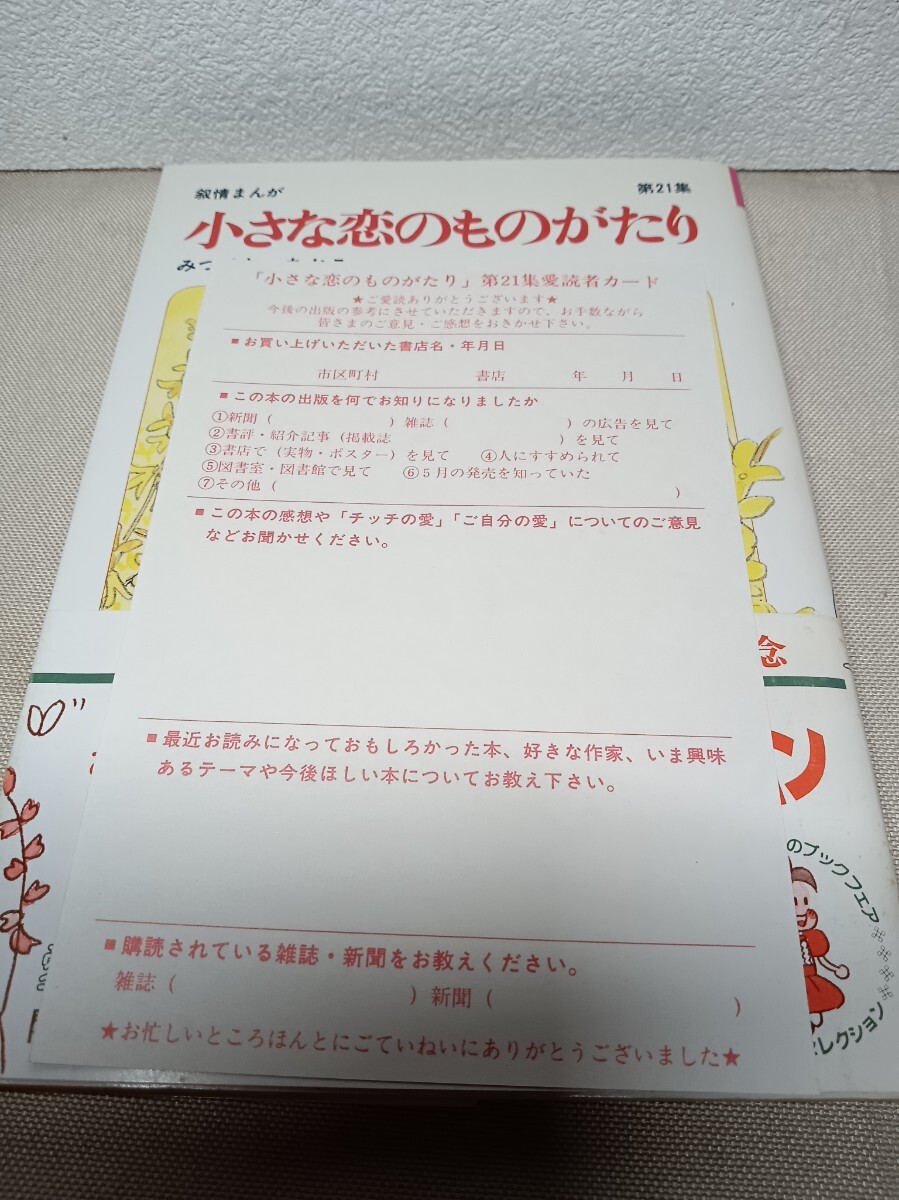 叙情まんが
第21集
小さな恋のものがたり
「小さな恋のものがたり」第21集愛読者カード
★ご愛読ありがとうございます★
今後の出版の参考にさせていただきますので、お手数ながら
皆さまのご意見・ご感想をおきかせ下さい。
■お買い上げいただいた書店名・年月日
市区町村 書店 年 月 日
■この本の出版を何でお知りになりましたか
①新聞( )雑誌( )の広告を見て
②書評・紹介記事(掲載誌 )を見て
③書店で(実物・ポスター)を見て ④人にすすめられて
⑤図書室・図書館で見て ⑥5月の発売を知っていた
⑦その他( )
■この本の感想や「チッチの愛」「ご自分の愛」についてのご意見
などお聞かせください。
■最近お読みになっておもしろかった本、好きな作家、いま興味
あるテーマや今後ほしい本についてお教え下さい。
■購読されている雑誌・新聞をお教えください。
雑誌( )新聞( )
★お忙しいところほんとにごていねいにありがとうございました★
念
ン
のブックフェア
セレクション